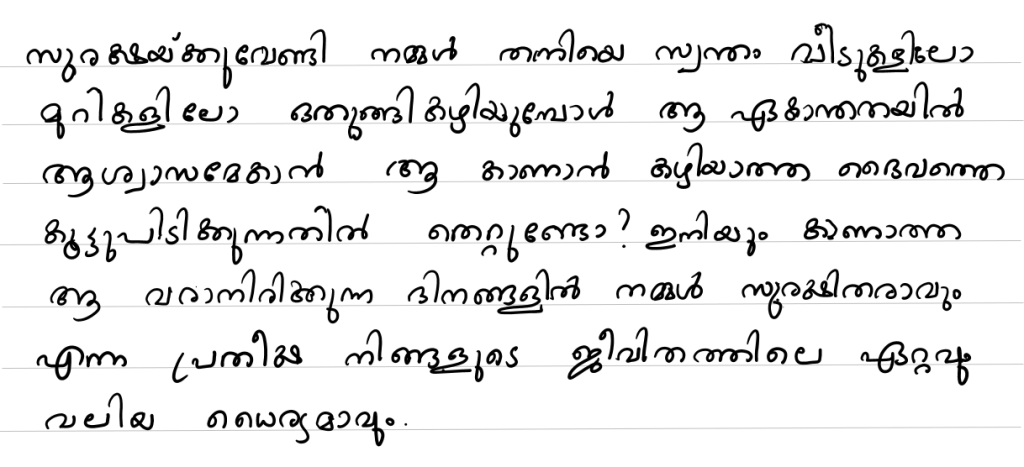 സുരക്ഷയ്ക്കുവേണ്ടി നമ്മൾ തന്നിയെ സ്വന്തം വീടുകളിലോ
മുറികളിലോ ഒതുങ്ങി കഴിയുമ്പോൾ ആ ഏകാന്തതയിൽ
ആശ്വാസമേകാൻ ആ കാണാൻ കഴിയാത്ത ദൈവത്തെ
കൂട്ടുപിടിക്കുന്നതിൽ തെറ്റുണ്ടോ? ഇനിയും കാണാത്ത
ആ വരാനിരിക്കുന്ന ദിനങ്ങളിൽ നമ്മൾ സുരക്ഷിതരാവും
എന്ന പ്രതീക്ഷ നിങ്ങളുടെ ജീവിതത്തിലെ ഏറ്റവും
വലിയ ധൈര്യമാവും.